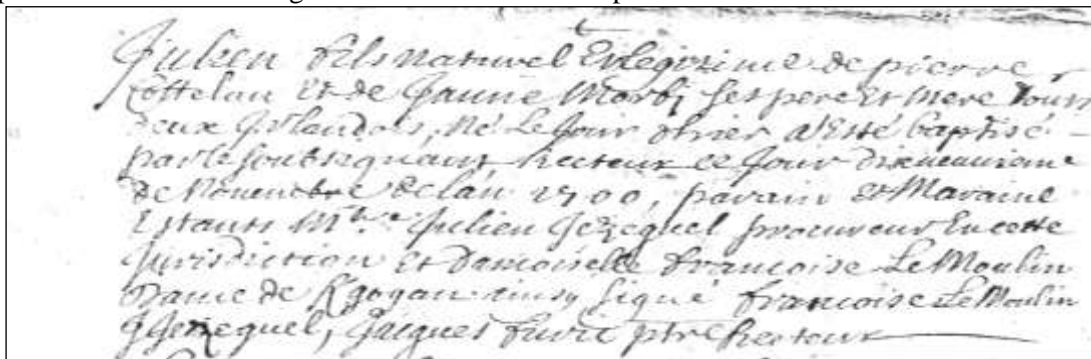 Julien fils naturel Et legitime de pierre
Cottelau Et de Jaune Morbi ses pere Et mere tous
deux Irlandois, Né Le Jour d'hier a Esté baptisé
par le soubsignant Recteur ce Jour dixneuvieme
de Novembre de l'an 1700, parain et Maraine
Estants Mtre Julien Jezequel procureur En cette
Jurisdiction Et Damoiselle francoise Le Moulin
Dame de Kgogan ainsy signé francoise Le Moulin
J Jezequel, Jacques ptre Recteur